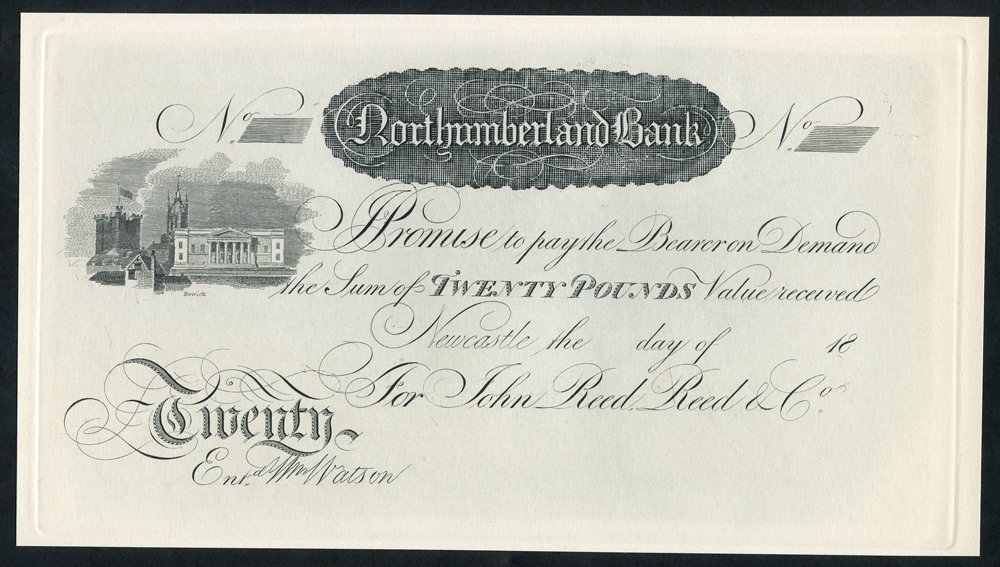 No Northumberland Bank No
I Promise to pay the Bearer on Demand
the Sum of TWENTY POUNDS Value received
Bewick
Newcastle the day of 18
For John Reed, Reed & Co.
Twenty
Ent.d Wm Watson